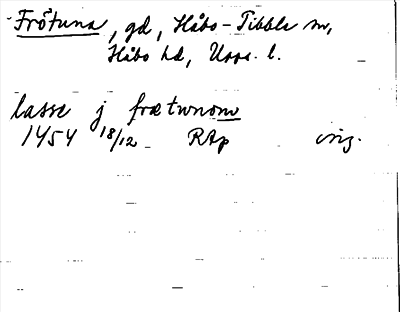 Frötuna, gd, Håbo-Tibble sn,
Håbo hd, Upps. l.
lasse j frætwnom
1454 18/12 RAp orig.